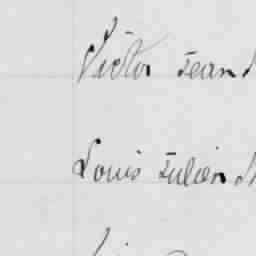 Victor Jean
Louis Julien